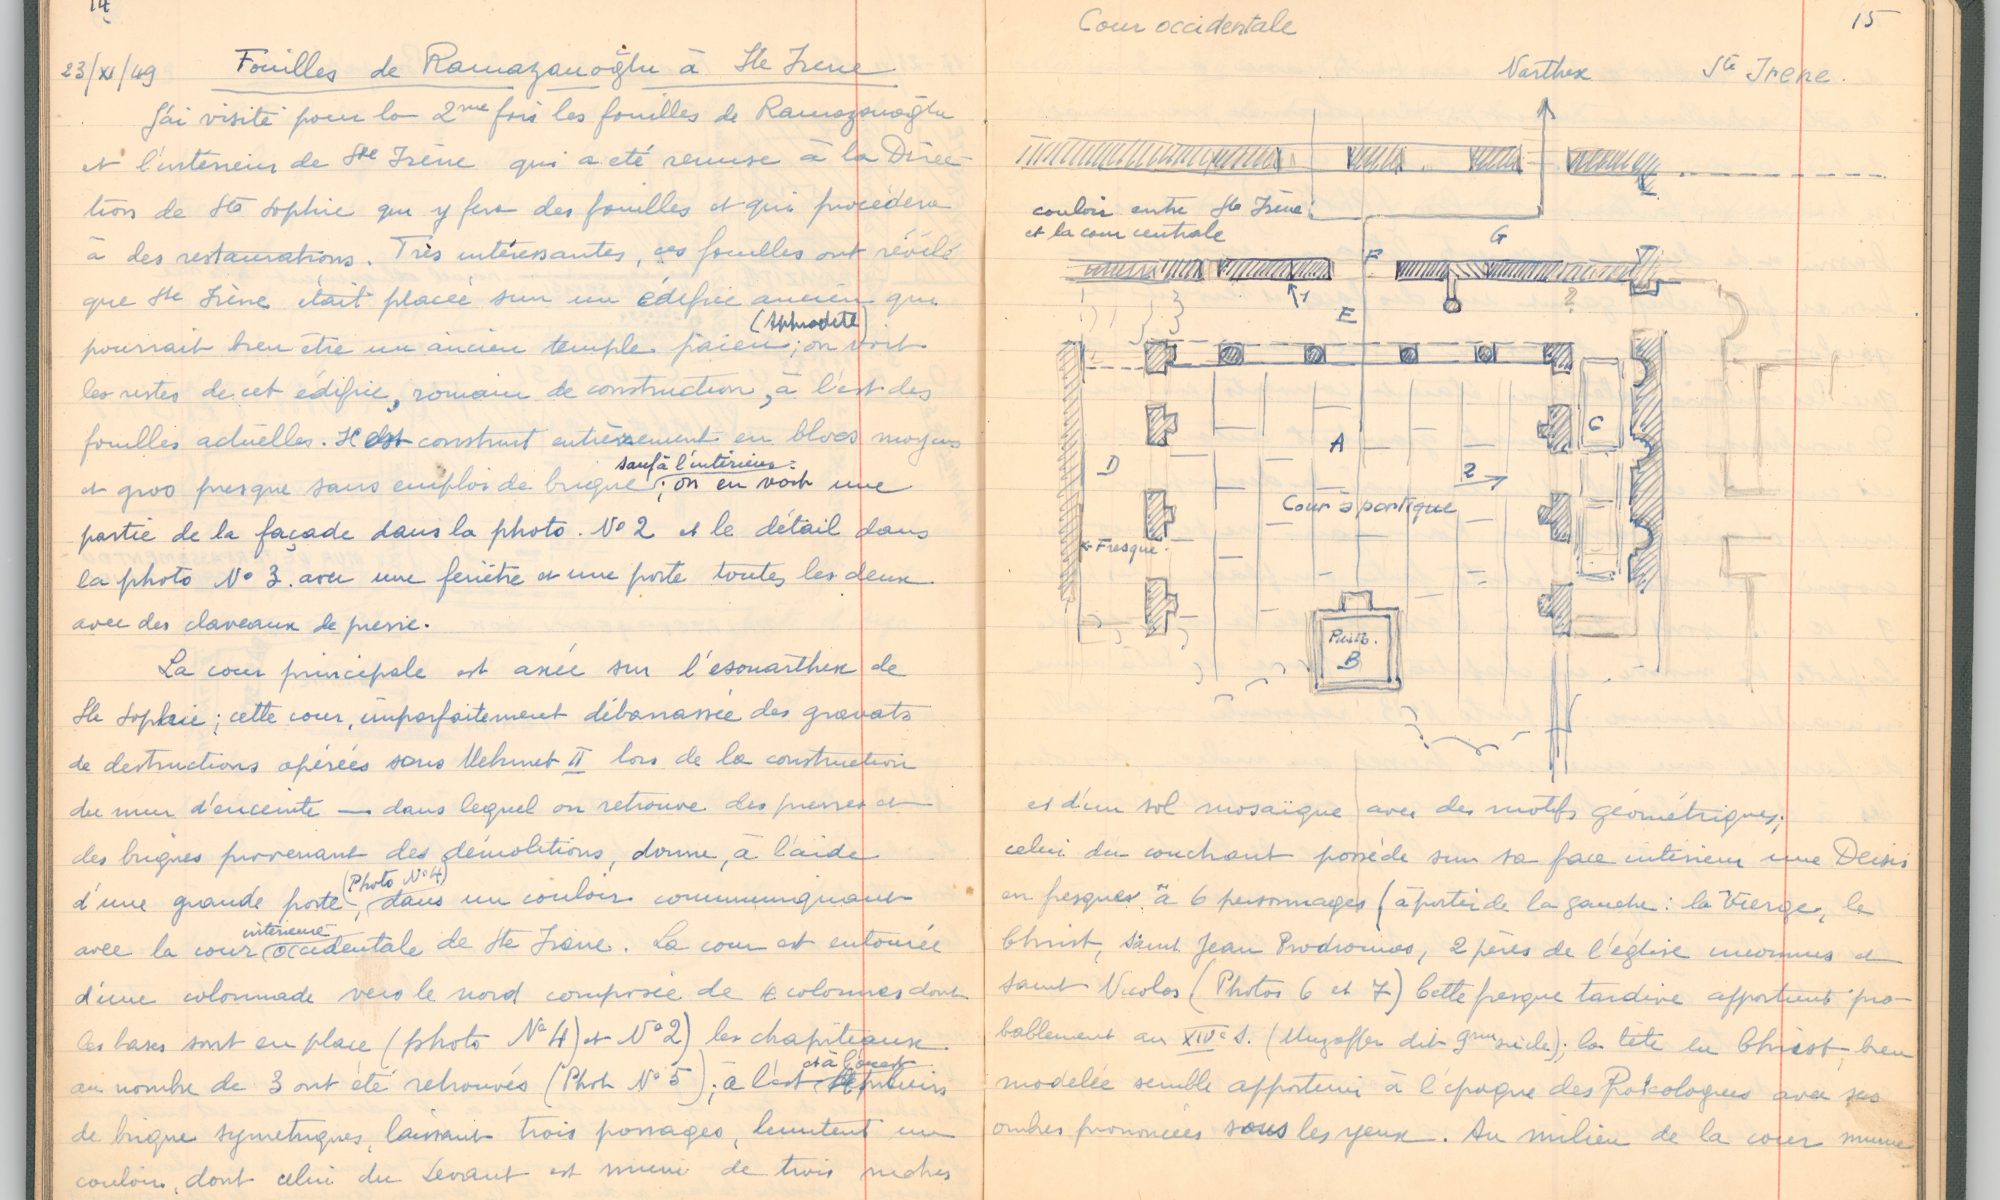 14
23/XI/49 Fouilles de Ramazanoğlu à Ste Irène
J'ai visité pour la 2me fois les fouilles de Ramazanoğlu
et l'intérieur de Ste Irène qui a été remise à la Direc-
tion de Ste Sophie qui y fera des fouilles et qui procédera
à des restaurations. Très intéressantes, ces fouilles ont révélé
que Ste Irène était placée sur un édifice ancien qui
(Aphrodite)
pourrait bien être un ancien temple païen; on voit
les restes de cet édifice, romain de construction, à l'est des
fouilles actuelles. Il est construit entièrement en blocs moyens
sauf à l'intérieur:
et gros presque sans emploi de brique; on en voit une
partie de la façade dans la photo. No 2 et le détail dans
la photo No 3. avec une fenêtre et une porte toutes les deux
avec des claveaux de pierre.
La cour principale est axée sur l'esonarthex de
Ste Sophie; cette cour, imparfaitement débarrassée des gravats
de destructions opérées sous Mehmet II lors de la construction
du mur d'enceinte — dans lequel on retrouve des pierres et
des briques provenant des démolitions, donne, à l'aide
(Photo No 4)
d'une grande porte, dans un couloir communiquant
intérieure
avec la cour (occidentale de Ste Irène. La cour est entourée
d'une colonnade vers le nord composée de 4 colonnes dont
les bases sont en place (photo No 4) et No 2) les chapiteaux
au nombre de 3 ont été retrouvés (Phot No 5); à l'est
et à l'ouest
de brique symetriques, laissant trois passages, limitent un
couloir, dont celui du Levant est muni de trois niches
15
Cour occidentale
Narthex Ste Irène.
couloir entre Ste Irène
et la cour centrale
G
F
1
?
E
A
C
D
2
Cour à portique
Fresque.
Puits.
B
et d'un sol mosaïque avec des motifs géométriques;
celui du couchant possède sur sa face intérieur une Deisis
en fresques à 6 personnages (à partir de la gauche: la Vierge, le
Christ, saint Jean Prodromos, 2 pères de l'église inconnus et
saint Nicolas (Photos 6 et 7) Cette fresque tardive appartient pro-
bablement au XIVe S. (Muzaffer dit siècle); la tête du Christ bien
modelée semble appartenir à l'époque des Paléologues avec ses
ombres prononcées sous les yeux. Au milieu de la cour